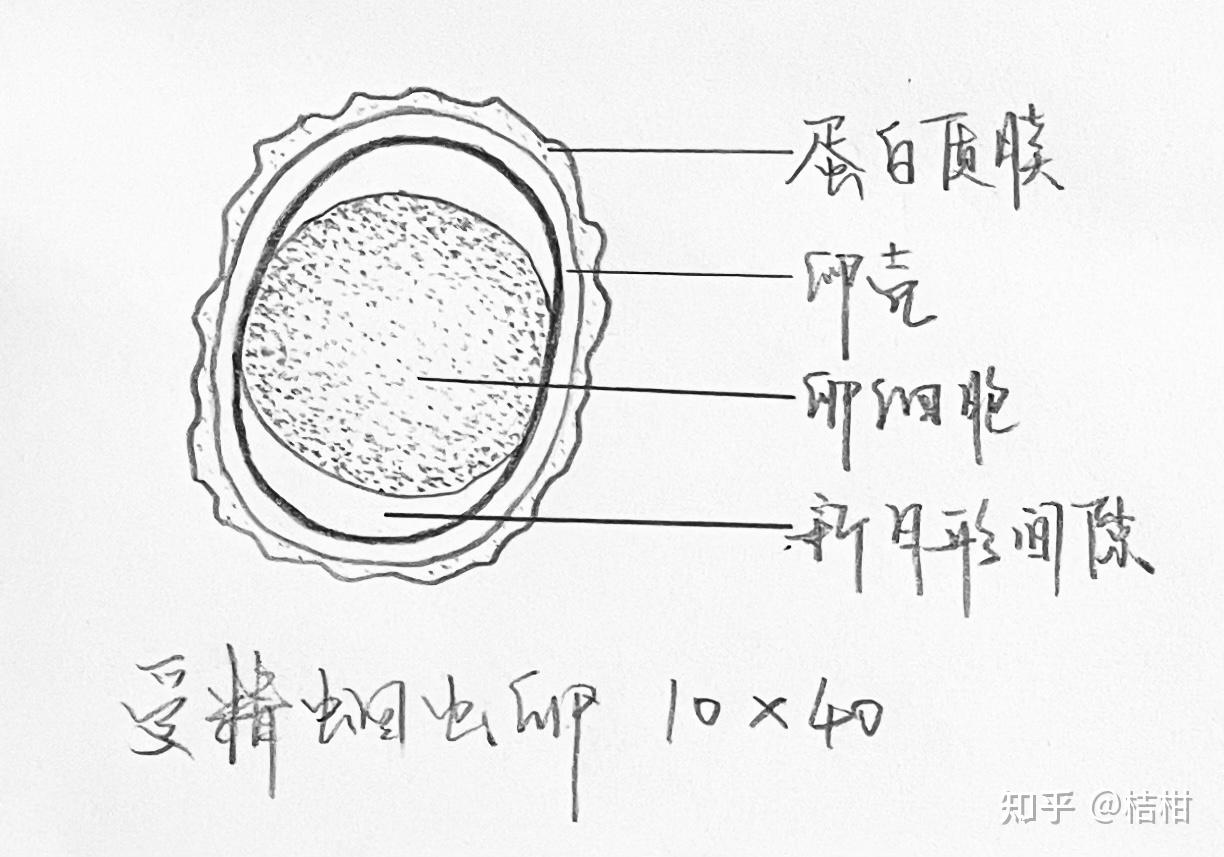 蛋白质膜
卵壳
卵细胞
新月形间隙
受精蛔虫卵 10×40
知乎 @桔柑